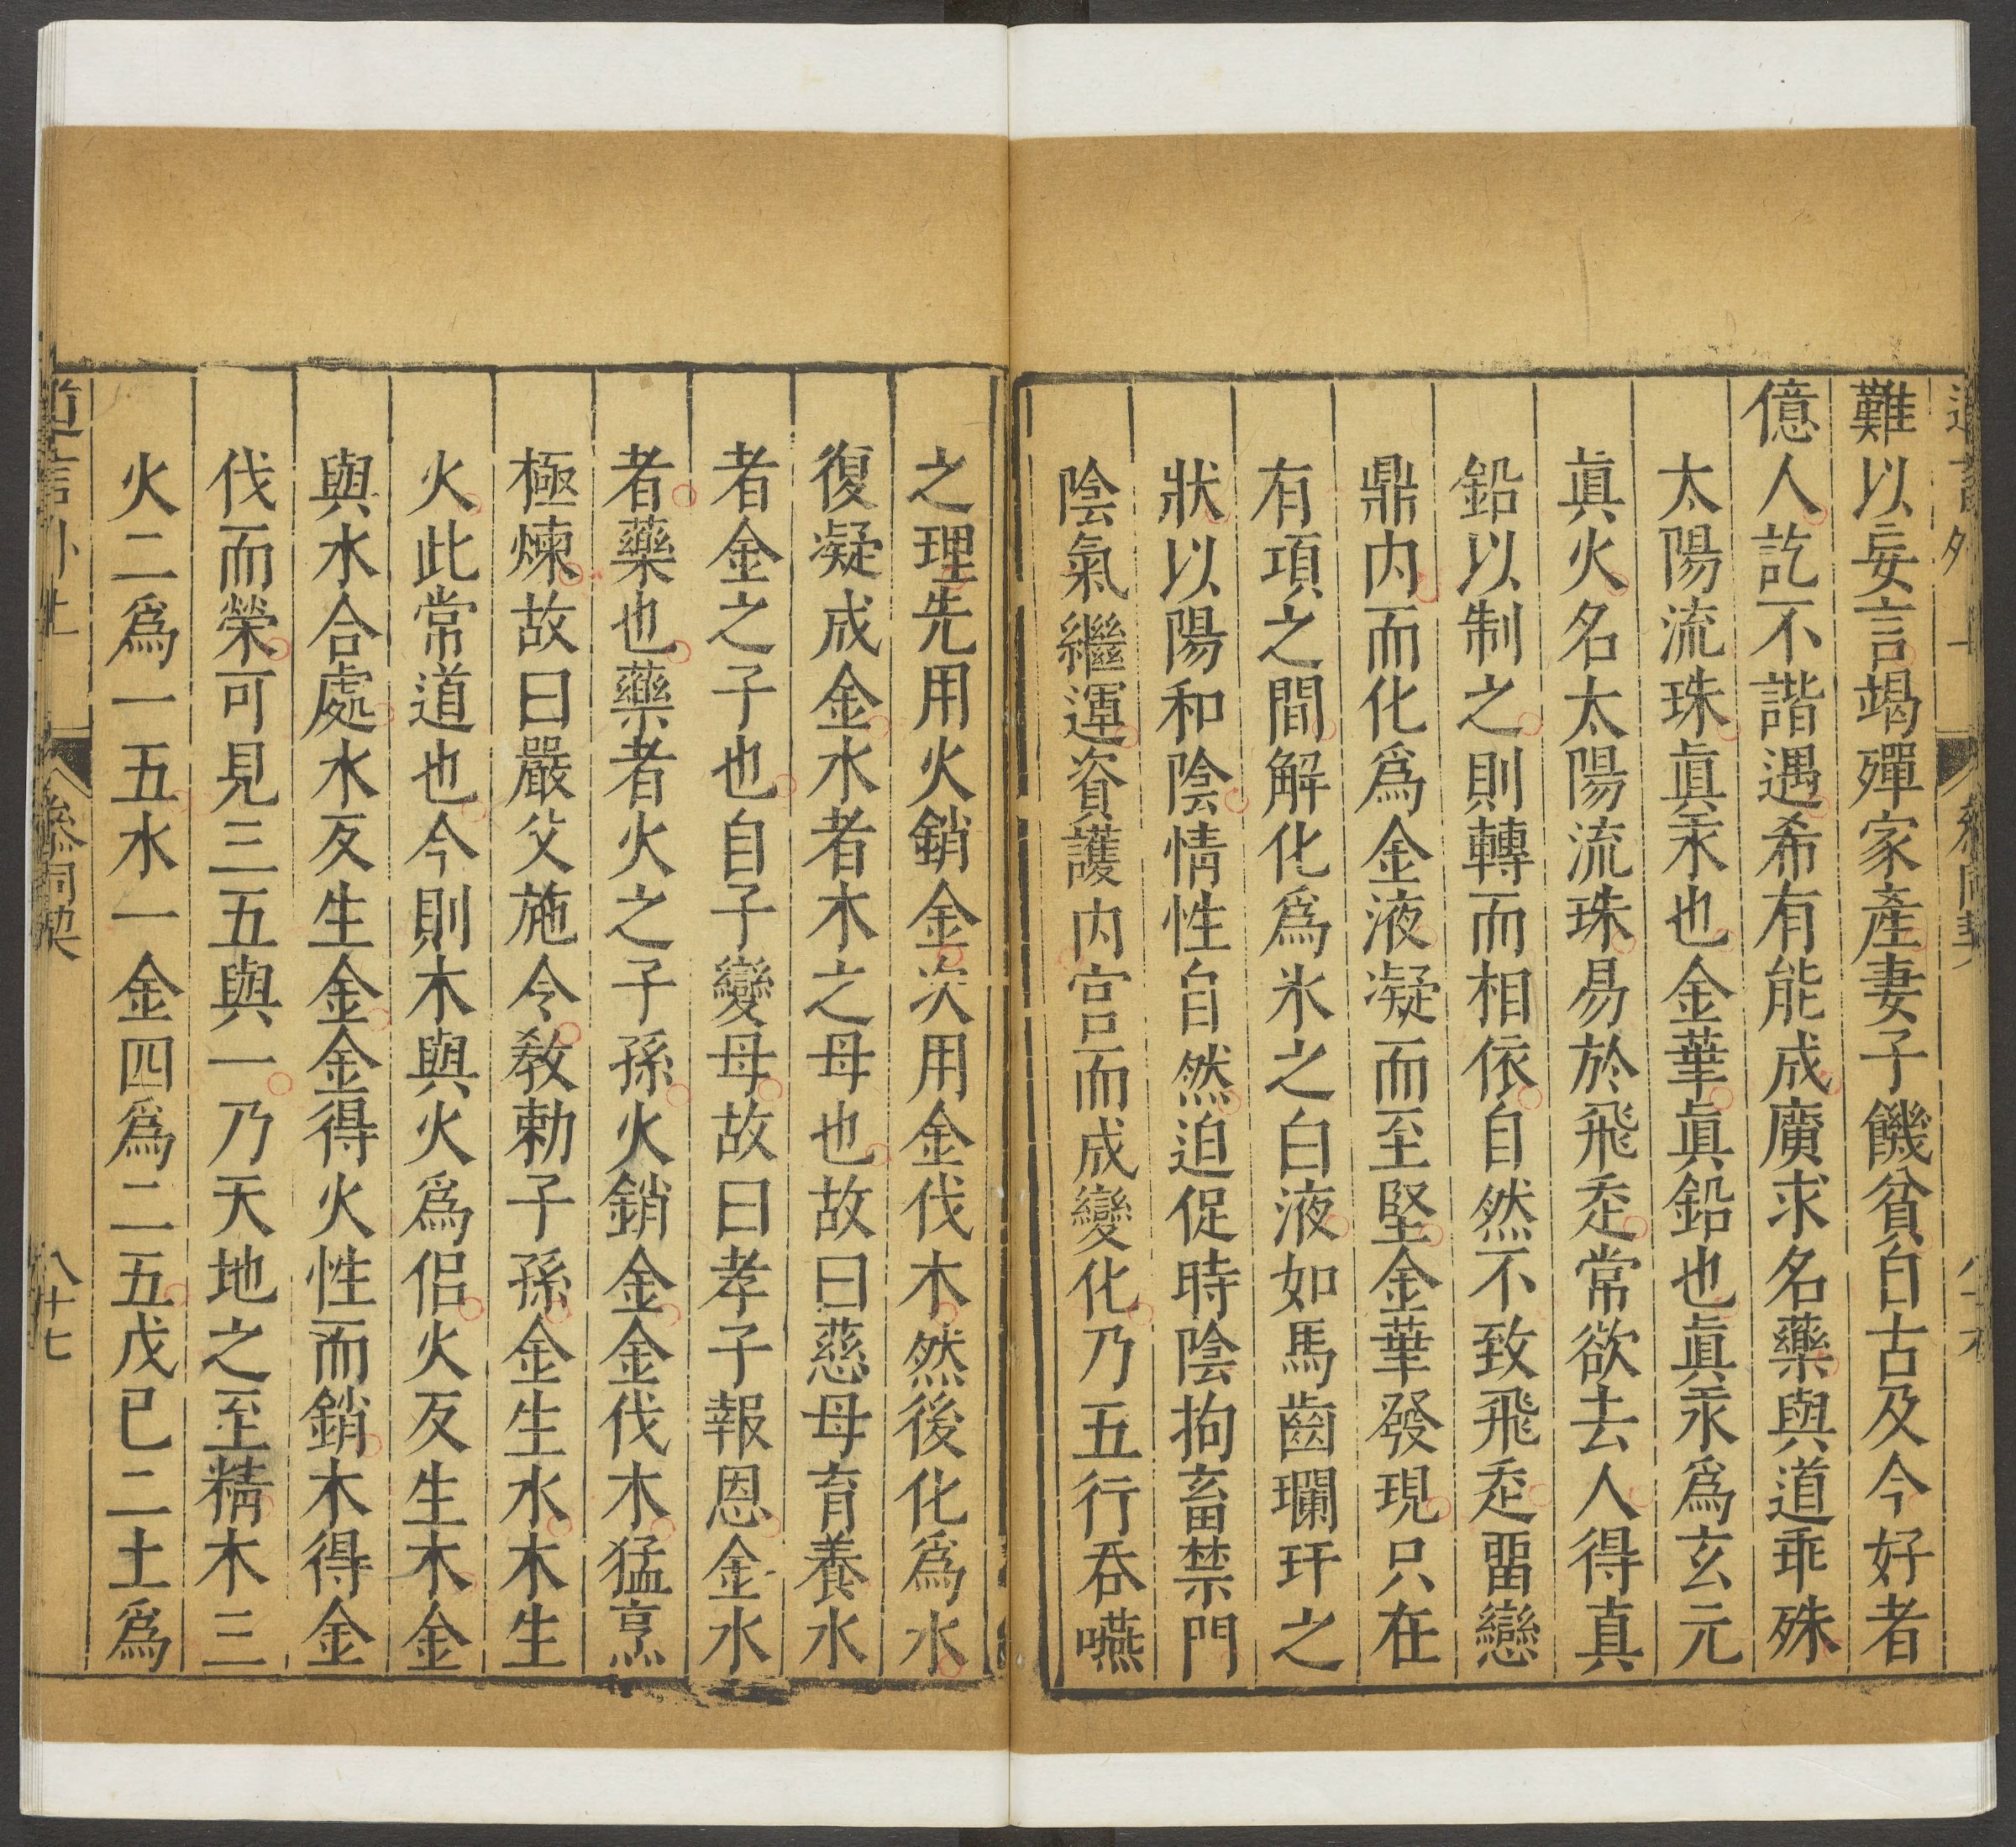 難以妄言竭殫家產妻子饑貧自古及今好者
億人訖不諧遇希有能成廣求名藥與道乖殊
太陽流珠眞汞也金華眞鉛也眞汞爲玄元
眞火名太陽流珠易於飛走常欲去人得真
鉛以制之則轉而相依自然不致飛走畱戀
鼎内而化爲金液凝而至堅金華發現只在
有項之間解化爲氷之白液如馬齒瓓玕之
狀以陽和陰情性自然迫促時陰拘畜禁門
陰氣繼運資護内宮而成變化乃五行吞嚥
之理先用火銷金次用金伐木然後化爲水
復凝成金水者木之母也故曰慈母育養水
者金之子也自子變母故曰孝子報恩金水
者藥也藥者火之子孫火銷金金伐木猛烹
極煉故曰嚴父施令教勅子孫金生水木生
火此常道也今則木與火爲侣火反生木金
與水合處水反生金金得火性而銷木得金
伐而榮可見三五與一乃天地之至精木三
火二爲一五水一金四爲二五戊巳二土爲
參同契
八十七